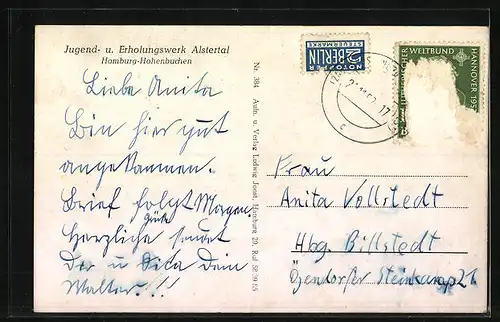 Jugend- u. Erholungswerk Alstertal
Hamburg-Hohenbuchen
Liebe Anita
Bin hier gut
angekommen.
Brief folgt Morgen.
Herzliche Grüße sendet
Dir u Dein
Walter!!!
Nr. 384 Aufn. u. Verlag Ludwig Joost, Hamburg 20, Ruf 52 39 55
2 NOTOPFER
BERLIN
STEUERMARKE
WELTBUND HANNOVER 1952
Frau
Anita Vollstedt
Hbg. Billstedt
Öjendorfer Steinkamp